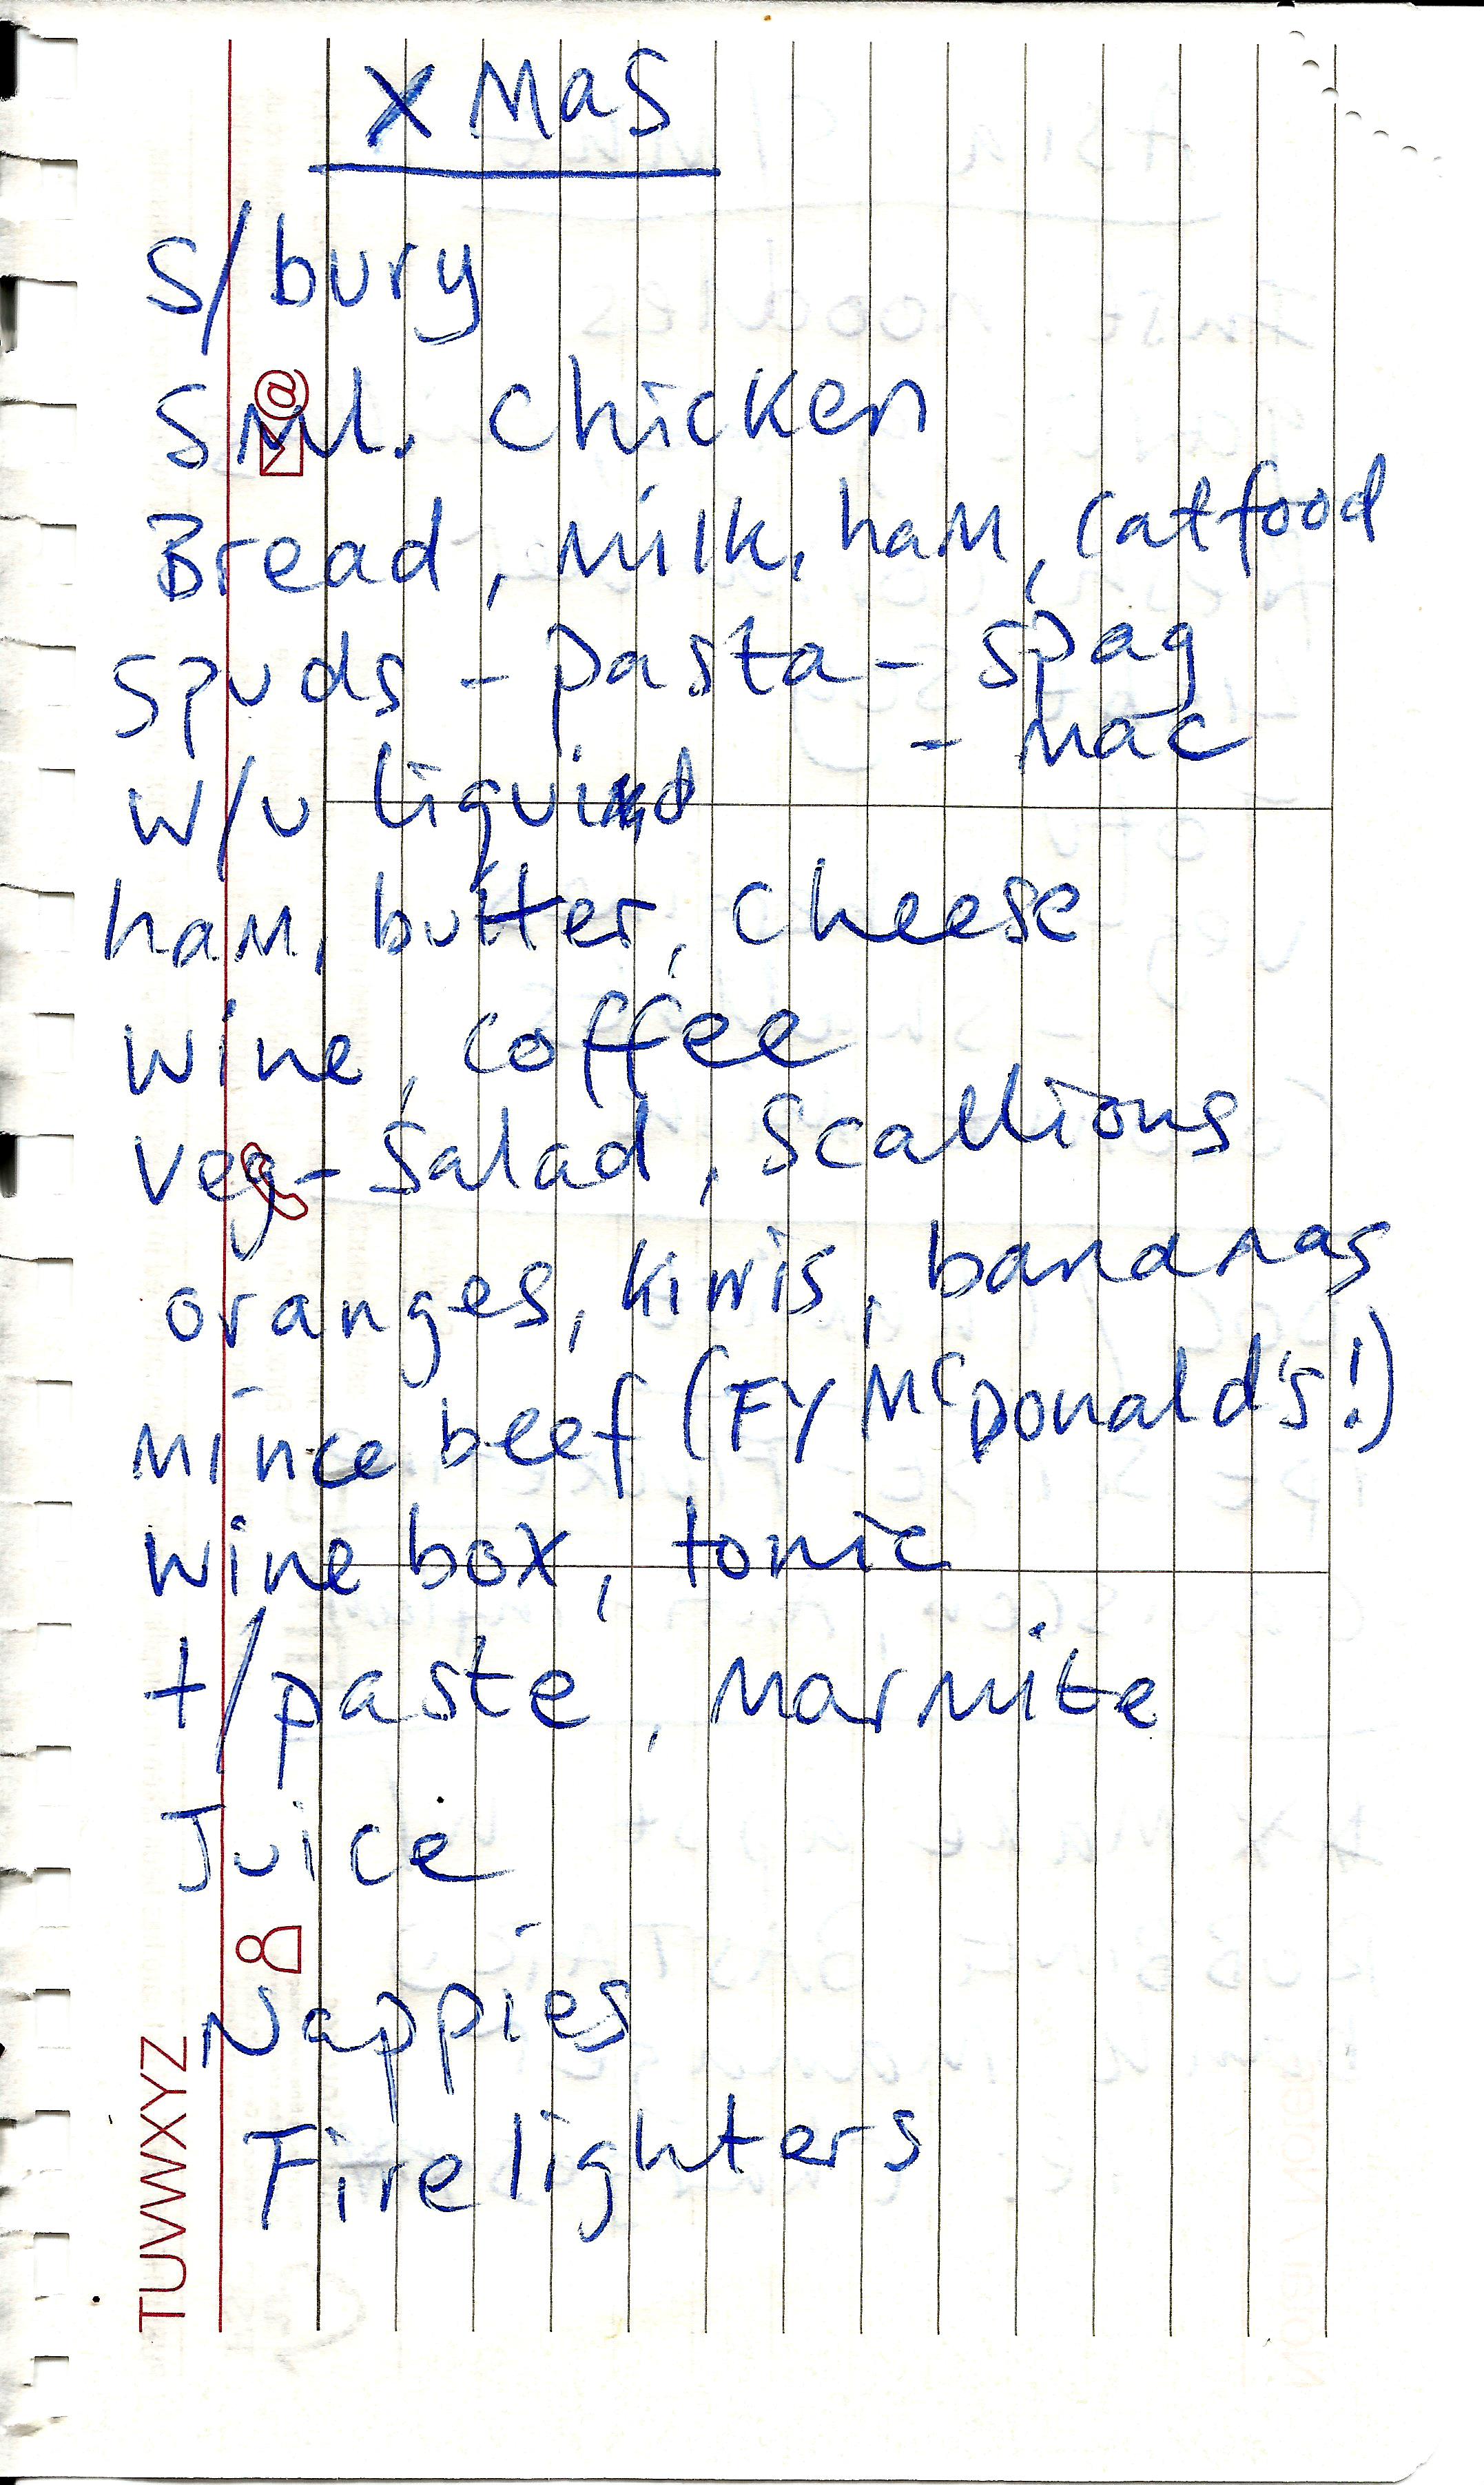 XMas
S/bury
Sml. chicken
Bread, milk, ham, catfood
Spuds - pasta - spag
- mac
w/u liquid
ham, butter, cheese
wine, coffee
veg - salad, scallions
oranges, kiwis, bananas
mince beef (FY McDonald's!)
wine box, tonic
t/paste, marmite
Juice
Nappies
Firelighters
TUVWXYZ